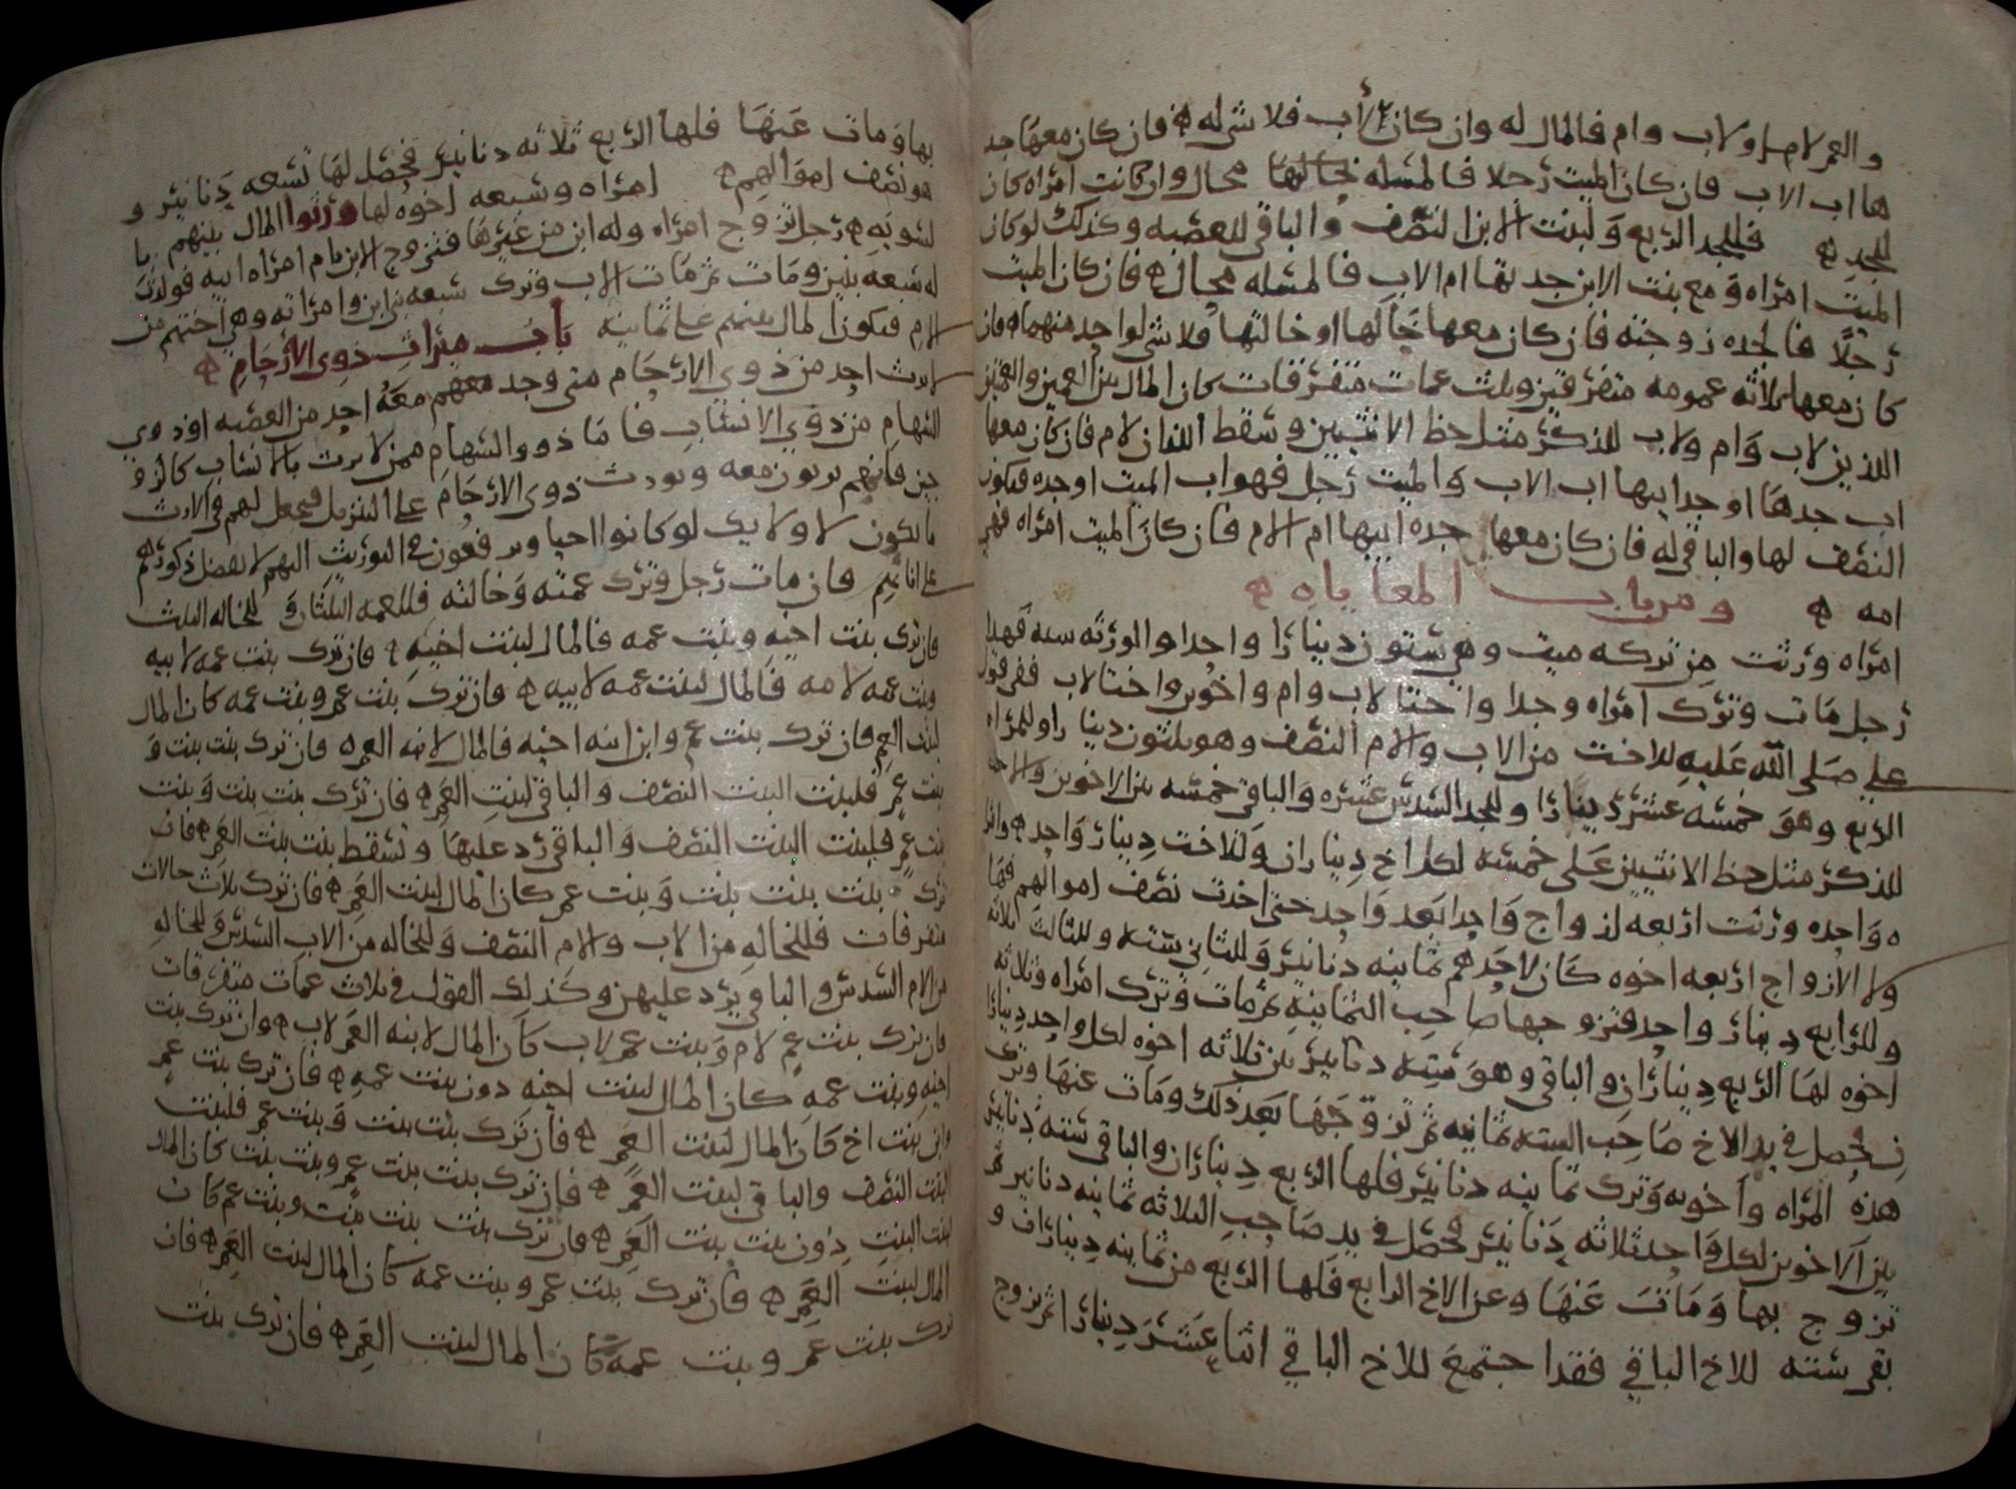 والعم لام ولاب وام فالمال له وان كان لأب فلا شي له ه فان كان معها جد
ها اب الاب فان كان الميت رجلا فالمسله بحالها محال وان كانت امراه كان
للجد ه فللجد الربع ولبنت الابن النصف والباقي للعصبه وكذلك لو كان
الميت امراه ومع بنت الابن جدتها ام الاب فالمسله محال ه فان كان الميت
رجلا فالجده زوجته فان كان معها خالها او خالتها فلا شي لواحد منهما ه فان
كان معها ثلاثه عمومه متفرقين وثلث عمات متفرقات كان المال بين العمين والعمتين
اللذين لاب وام ولاب للذكر مثل حظ الانثيين وسقط اللذان لام فان كان معها
اب جدها او جد ابيها اب الاب والميت رجل فهو اب الميت او جده فيكون
النصف لها والباقي له فان كان معها جده ابيها ام الام فان كان الميت امراه فهي
امه ه ومن باب المعاياه ه
امراه ورثت من تركه ميت وهي ستون دينارا واحدا والورثه سته فهذا
رجل مات وترك امراه وجدا واختا لاب وام واخوين واختا لاب ففي قول
علي صلى الله عليه للاخت من الاب والام النصف وهو ثلثون دينارا وللمراه
الربع وهو خمسه عشر دينارا وللجد السدس عشره والباقي خمسه بين الاخوين والاخت
للذكر مثل حظ الانثيين على خمسه لكل اخ ديناران وللاخت دينار واحد ه وامرا
ه واحده ورثت اربعه ازواج واحدا بعد واحد حتى اخذت نصف اموالهم فها
ولا الازواج اربعه اخوه كان لاحدهم ثمانيه دنانير وللثاني سته وللثالث ثلاثه
وللرابع دينار واحد فتزوجها صاحب الثمانيه ثم مات وترك امراه وثلاثه
اخوه لها الربع ديناران والباقي وهو سته دنانير بين ثلاثه اخوه لكل واحد دينارا
ن فحصل في يد الاخ صاحب السته ثمانيه ثم تزوجها بعد ذلك ومات عنها وترك
هذه المراه واخويه وترك ثمانيه دنانير فلها الربع ديناران والباقي سته دنانير
بين الاخوين لكل واحد ثلاثه دنانير فحصل في يد صاحب الثلاثه ثمانيه دنانير ثم
تزوج بها ومات عنها وعن الاخ الرابع فلها الربع من ثمانيه ديناران و
بقي سته للاخ الباقي فقد اجتمع للاخ الباقي اثنا عشر دينارا ثم تزوج
بها ومات عنها فلها الربع ثلاثه دنانير فحصل لها تسعه دنانير و
هو نصف اموالهم ه امراه وسبعه اخوه لها ورثوا المال بينهم با
لسويه ه رجل تزوج امراه وله ابن من غيرها فتزوج الابن بام امراه ابيه فولدت
له سبعه بنين ومات ثم مات الاب وترك سبعه بني ابن وامراته وهي اختهم من
الام فيكون المال بينهم على ثمانيه باب ميراث ذوي الأرحام ه
لا يرث احد من ذوي الارحام متى وجد معهم معه احد من العصبه او ذوي
السهام من ذوي الانساب فاما ذوو السهام ممن لا يرث بالانساب كالزو
جين فانهم يرثون معه ويورث ذوي الارحام على التنزيل فيجعل لهم في الارث
ما يكون لاولايك لو كانوا احيا ويرفعون في التوريث اليهم لا يفضل ذكورهم
على اناثهم فان مات رجل وترك عمته وخالته فللعمه الثلثان وللخاله الثلث
فان ترك بنت اخيه وبنت عمه فالمال لبنت اخيه ه فان ترك بنت عمه لابيه
وبنت عمه لامه فالمال لبنت عمه لابيه ه فان ترك بنت عم وبنت عمه كان المال
لبنت العم فان ترك بنت عم وابن ابنه اخيه فالمال لابنه العم ه فان ترك بنت بنت و
بنت عم فلبنت البنت النصف والباقي لبنت العم ه فان ترك بنت بنت وبنت
بنت عم فلبنت البنت النصف والباقي رد عليها وتسقط بنت بنت العم ه فان
ترك بنت بنت بنت وبنت عم كان المال لبنت العم ه فان ترك ثلاث خالات
متفرقات فللخاله من الاب والام النصف وللخاله من الاب السدس وللخاله
من الام السدس والباقي يرد عليهن وكذلك القول في ثلاث عمات متفرقات
فان ترك بنت عم لام وبنت عم لاب كان المال لابنه العم لاب ه وان ترك بنت
اخيه وبنت عمه كان المال لبنت اخيه دون بنت عمه ه فان ترك بنت عم
وابن بنت اخ كان المال لبنت العم ه فان ترك بنت بنت وبنت عم فلبنت
البنت النصف والباقي لبنت العم ه فان ترك بنت بنت عم وبنت بنت كان المال
لبنت البنت دون بنت بنت العم ه فان ترك بنت بنت بنت وبنت عم كان
المال لبنت العم ه فان ترك بنت عم وبنت عمه كان المال لبنت العم ه فان
ترك بنت عم وبنت عمه كان المال لبنت العم ه فان ترك بنت